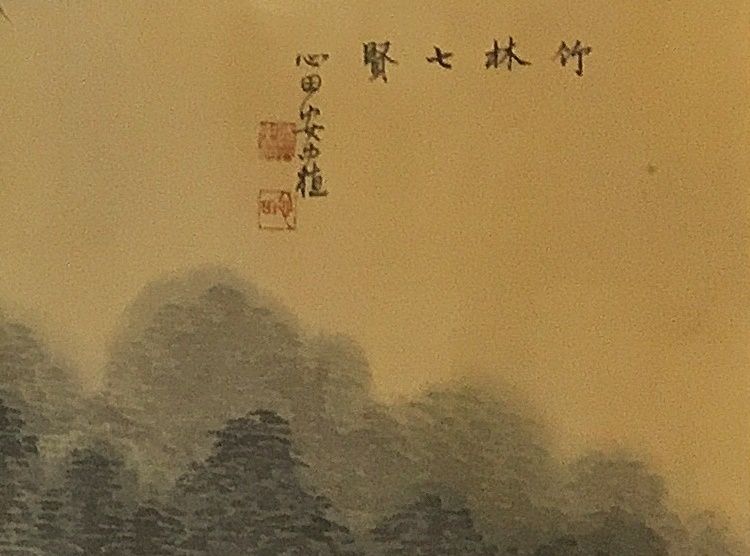 竹林七賢
心田安中植